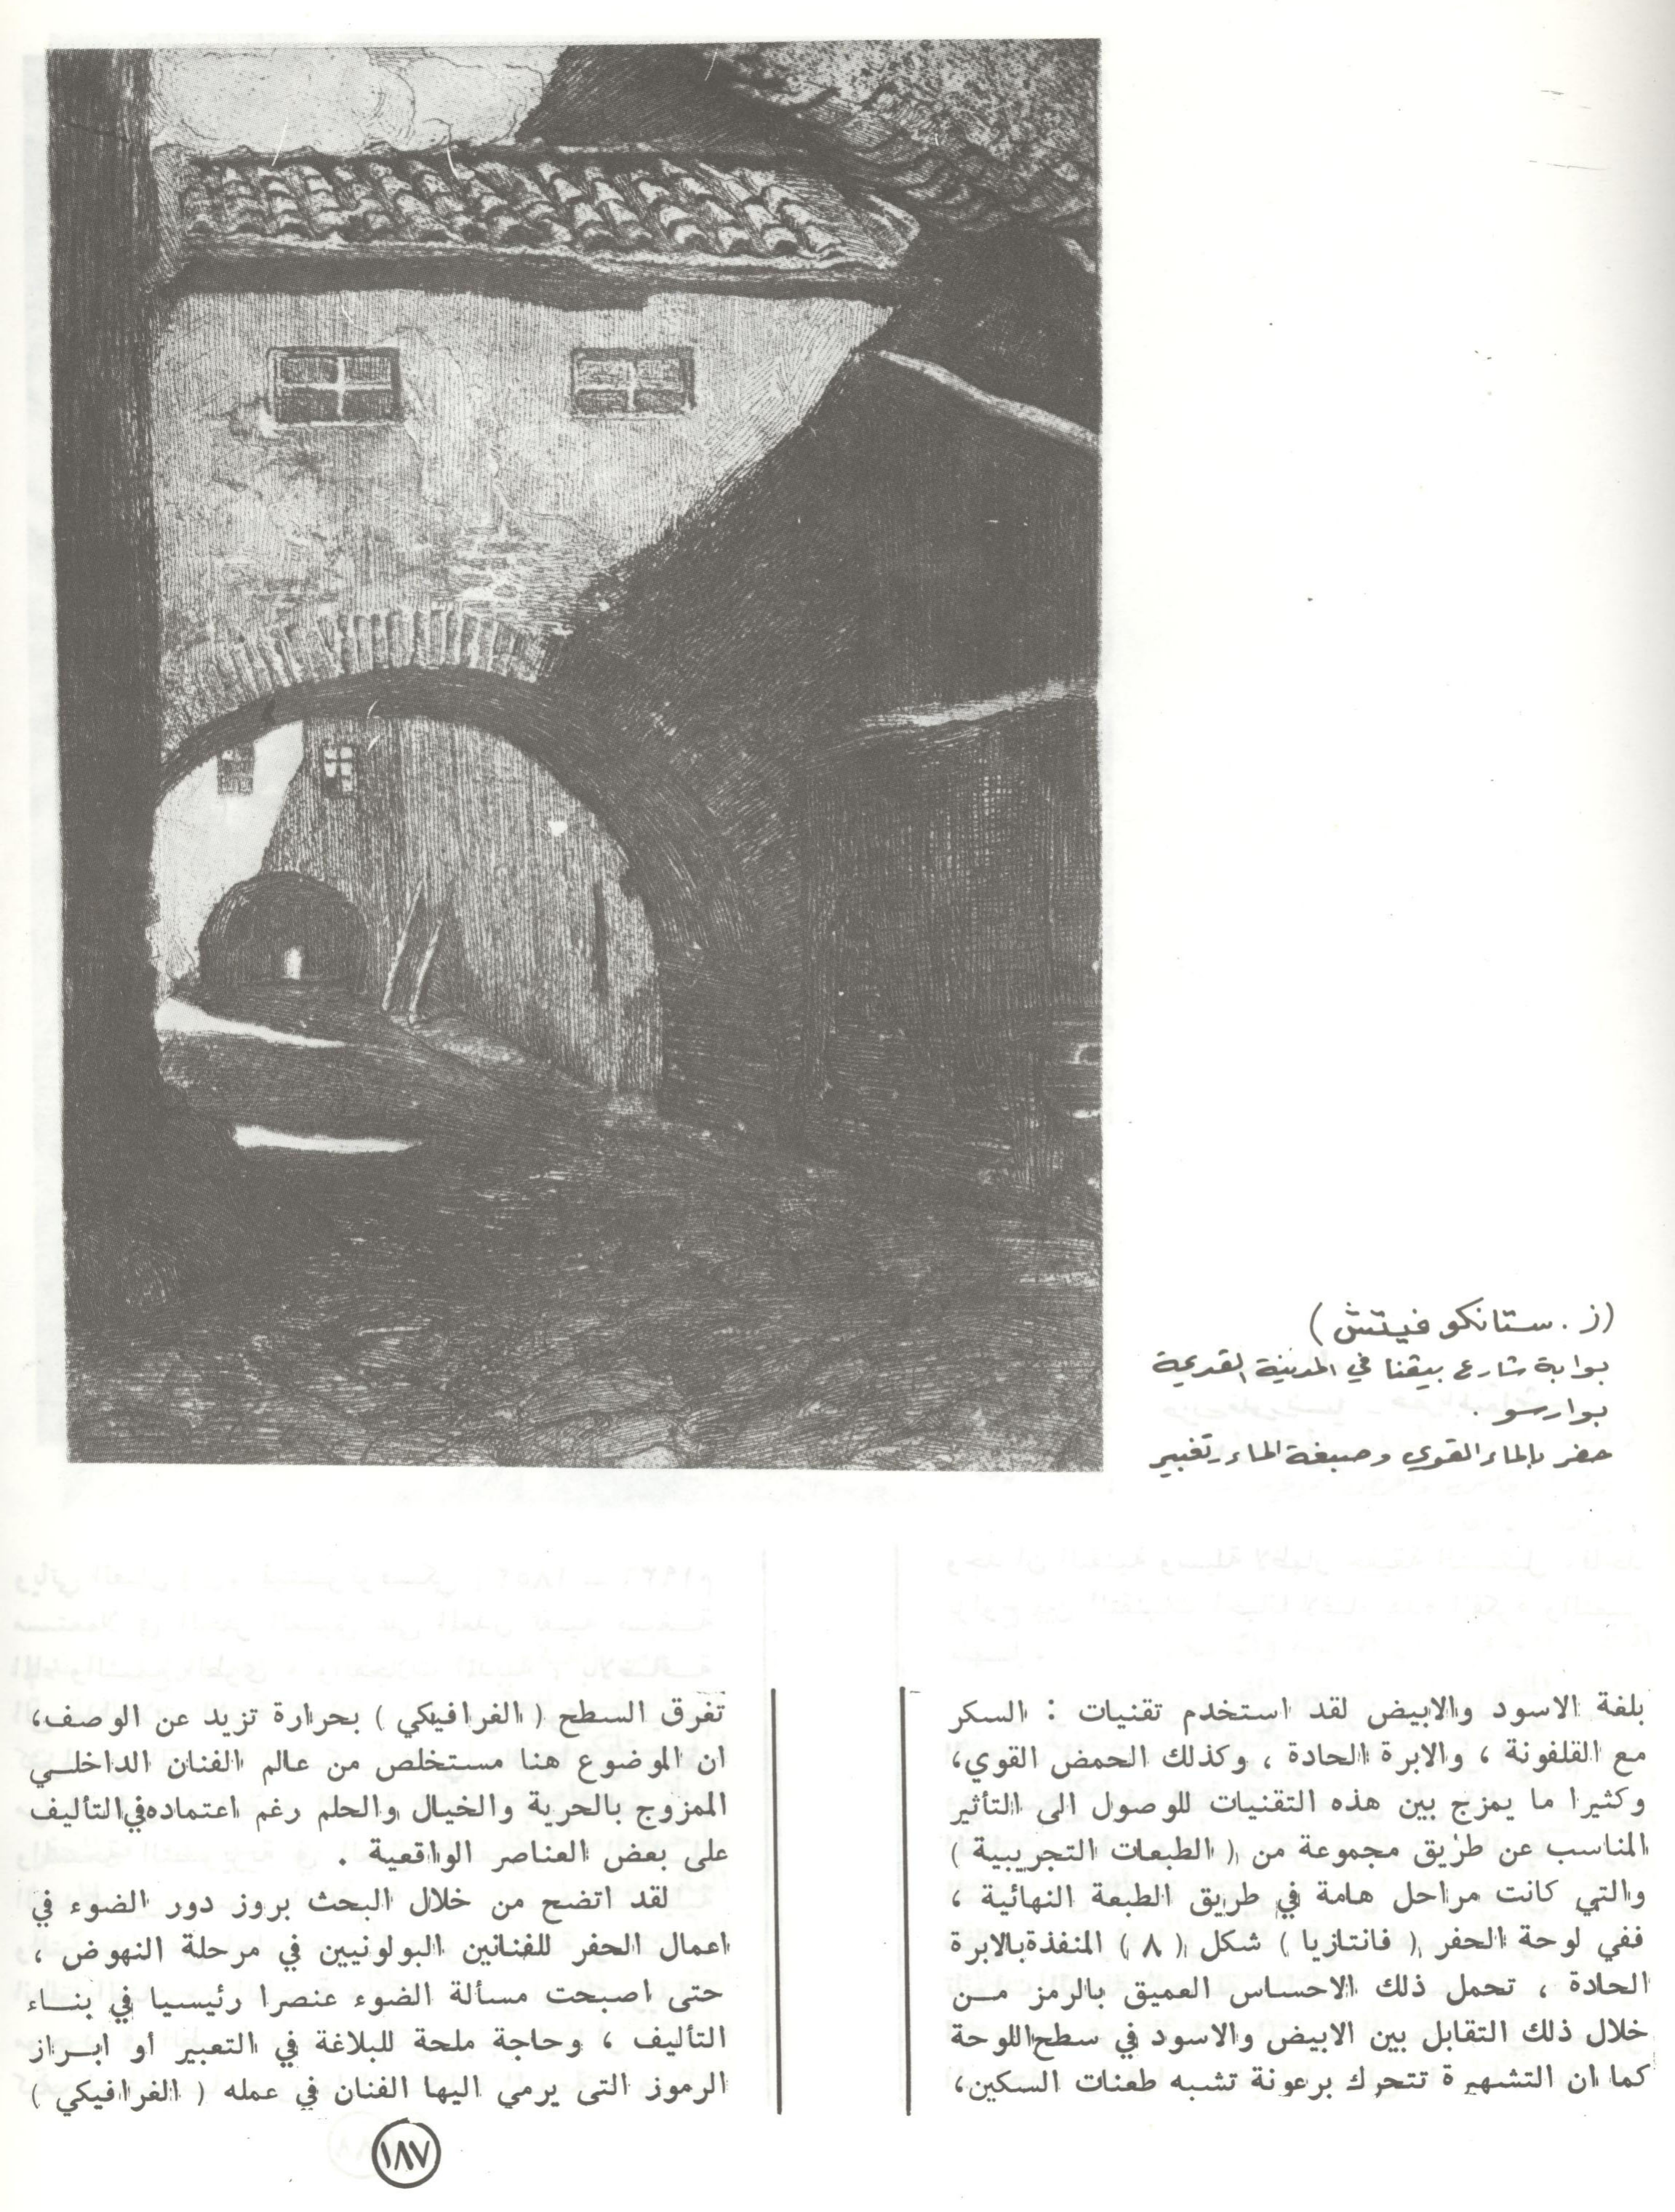 (ز . ستانكو فيتش)
بوابة شارع بيڤنا في المدينة القديمة
بوارسو .
حفر بالماء القوي وصبغة الماء وتغبير
بلغة الاسود والابيض لقد استخدم تقنيات : السكر
مع القلفونة ، والابرة الحادة ، وكذلك الحمض القوي،
وكثيرا ما يمزج بين هذه التقنيات للوصول الى التأثير
المناسب عن طريق مجموعة من ( الطبعات التجريبية )
والتي كانت مراحل هامة في طريق الطبعة النهائية ،
ففي لوحة الحفر ( فانتازيا ) شكل ( ٨ ) المنفذة بالابرة
الحادة ، تحمل ذلك الاحساس العميق بالرمز مــن
خلال ذلك التقابل بين الابيض والاسود في سطح اللوحة
كما ان التشهيرة تتحرك برعونة تشبه طعنات السكين،
تفرق السطح ( الغرافيكي ) بحرارة تزيد عن الوصف،
ان الموضوع هنا مستخلص من عالم الفنان الداخلــي
الممزوج بالحرية والخيال والحلم رغم اعتماده في التأليف
على بعض العناصر الواقعية .
لقد اتضح من خلال البحث بروز دور الضوء في
اعمال الحفر للفنانين البولونيين في مرحلة النهوض ،
حتى اصبحت مسألة الضوء عنصرا رئيسيا في بنــاء
التأليف ، وحاجة ملحة للبلاغة في التعبير او ابــراز
الرموز التى يرمي اليها الفنان في عمله ( الغرافيكي )
١٨٧